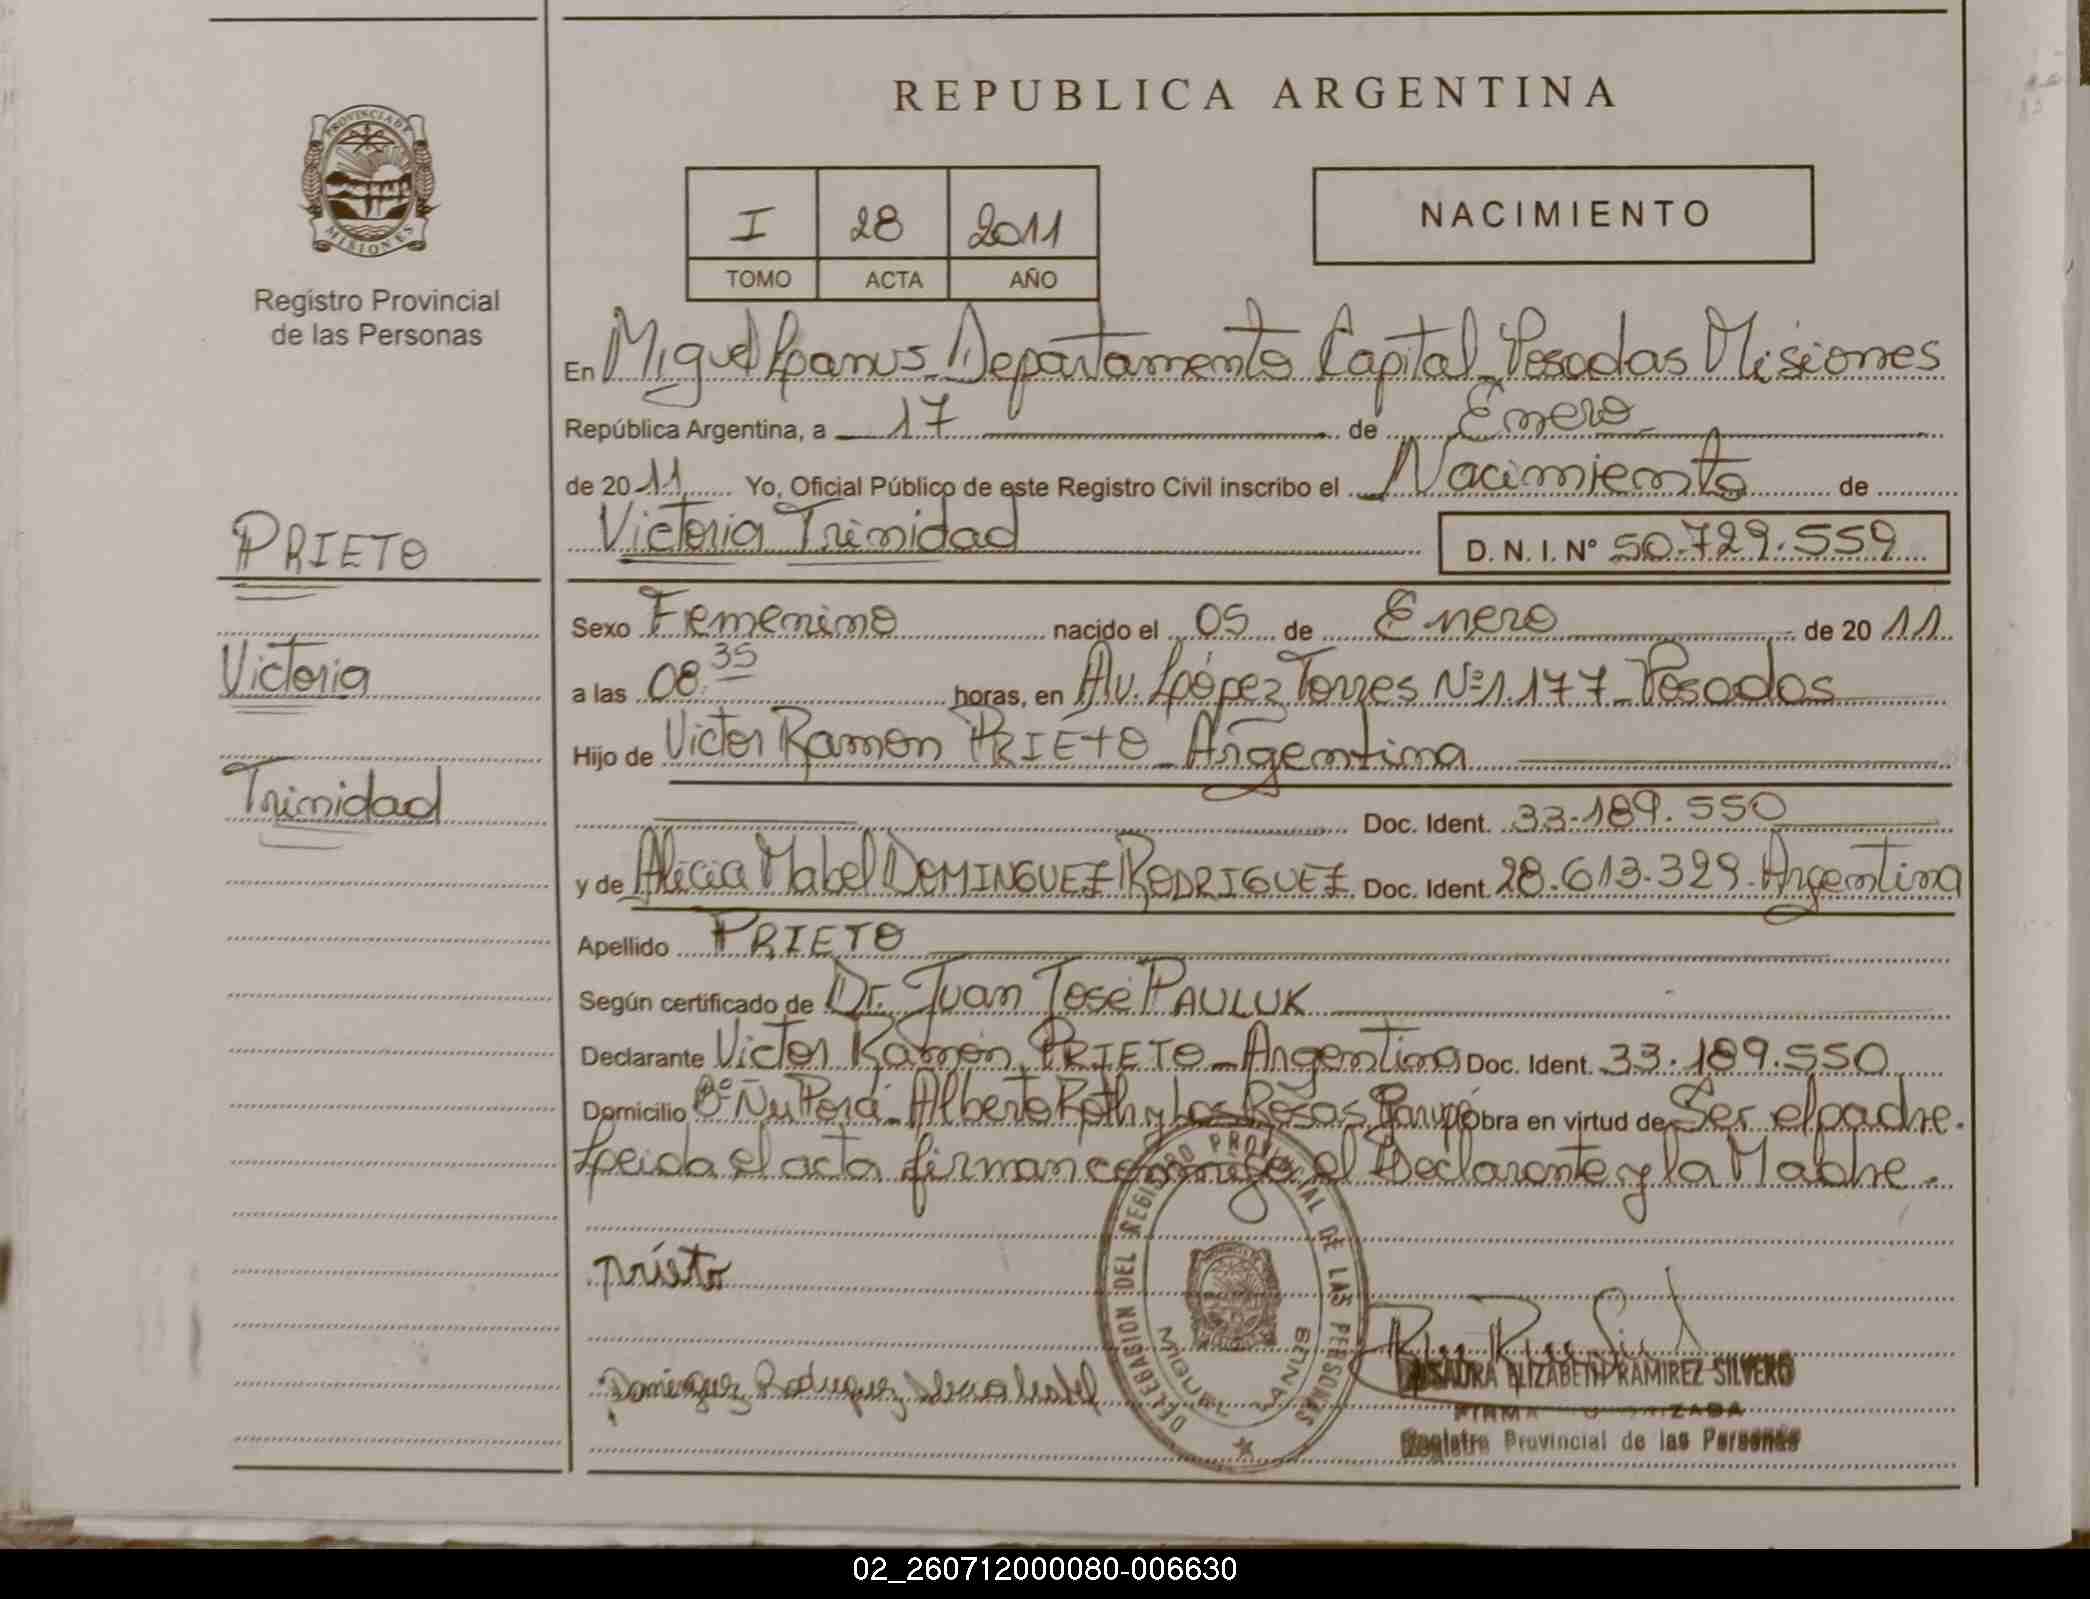 REPUBLICA ARGENTINA
PROVINCIA DE MISIONES
Registro Provincial
de las Personas
I 28 2011
TOMO ACTA AÑO
NACIMIENTO
En Miguel Lanus - Departamento Capital - Posadas Misiones
República Argentina, a 17 de Enero
de 2011 Yo, Oficial Público de este Registro Civil inscribo el Nacimiento de
Victoria Trinidad D. N. I. Nº 50.729.559
PRIETO
Victoria
Trinidad
Sexo Femenino nacido el 05 de Enero de 2011
a las 08.35 horas, en Av. López Torres Nº 1.177 - Posadas
Hijo de Victor Ramon PRIETO - Argentina
Doc. Ident. 33.189.550
y de Alicia Mabel DOMINGUEZ RODRIGUEZ Doc. Ident. 28.613.329. Argentina
Apellido PRIETO
Según certificado de Dr. Juan José PAULUK
Declarante Victor Ramón PRIETO - Argentina Doc. Ident. 33.189.550
Domicilio Bº Ñu Porá - Alberto Roth y Las Rosas, Garupá Obra en virtud de Ser el padre.
Leida el acta firman conmigo el Declarante y la Madre.
DELEGACION DEL REGISTRO PROVINCIAL DE LAS PERSONAS
MIGUEL LANUS
prieto
Dominguez Rodriguez Alicia Mabel
ELIZABETH RAMIREZ SILVERO
FIRMA AUTORIZADA
Registro Provincial de las Personas
02_260712000080-006630